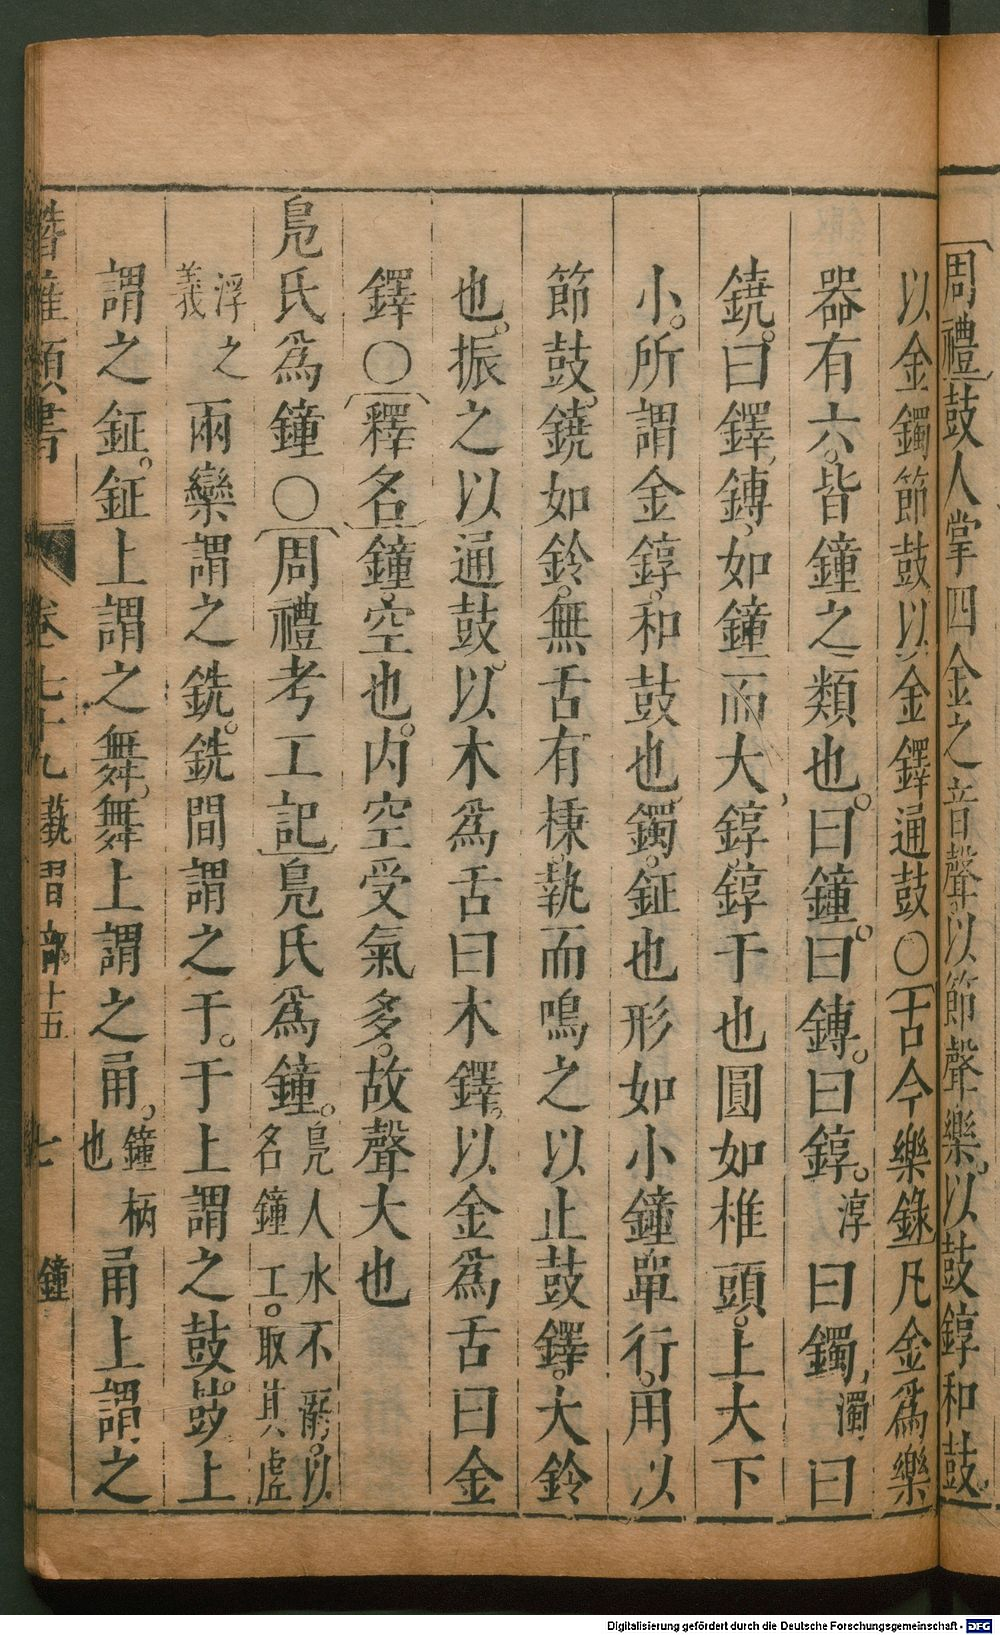 周禮鼓人掌四金之音聲以節聲樂。以鼓錞和鼓。
以金鐲節鼓以金鐸通鼓〇古今樂錄凡金爲樂
器有六。皆鐘之類也。曰鐘。曰鎛。曰錞。淳曰鐲濁曰
鐃。曰鐸鎛。如鐘而大錞錞于也圓如椎頭。上大下
小。所謂金錞。和鼓也鐲。鉦也形如小鐘軍行。用以
節鼓。鐃如鈴。無舌有𣓤執而鳴之以止鼓鐸。大鈴
也。振之以通鼓。以木爲舌曰木鐸。以金爲舌曰金
鐸〇釋名鐘。空也。內空受氣多。故聲大也
鳧氏爲鐘〇周禮考工記鳧氏爲鐘。鳧人水不溺。以名鐘工。取其虛
浮之義兩欒謂之銑。銑間謂之于。于上謂之鼓。鼓上
謂之鉦。鉦上謂之舞。舞上謂之甬。鐘柄也甬上謂之
潛確類書 卷七十九 藝習部十五 七 鐘
Digitalisierung gefördert durch die Deutsche Forschungsgemeinschaft - DFG